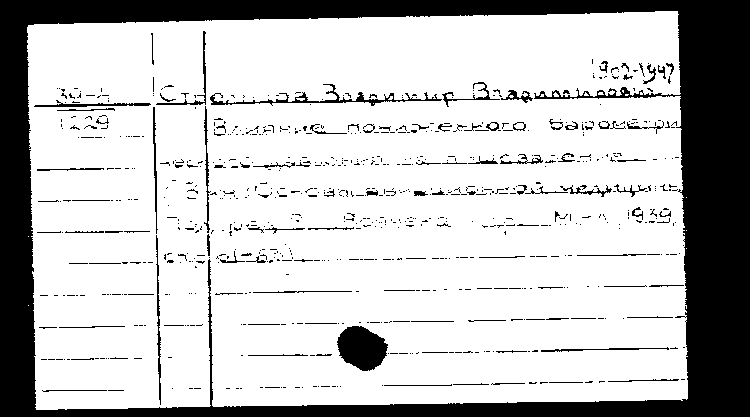 1902-1947
Стрельцов Владимир Владимирович
1229
Влияние пониженного барометри
ческого давления на пищеварение.
Вкн: Основы авиационной медицины
Под ред. М.-Л, 1939,
стр.